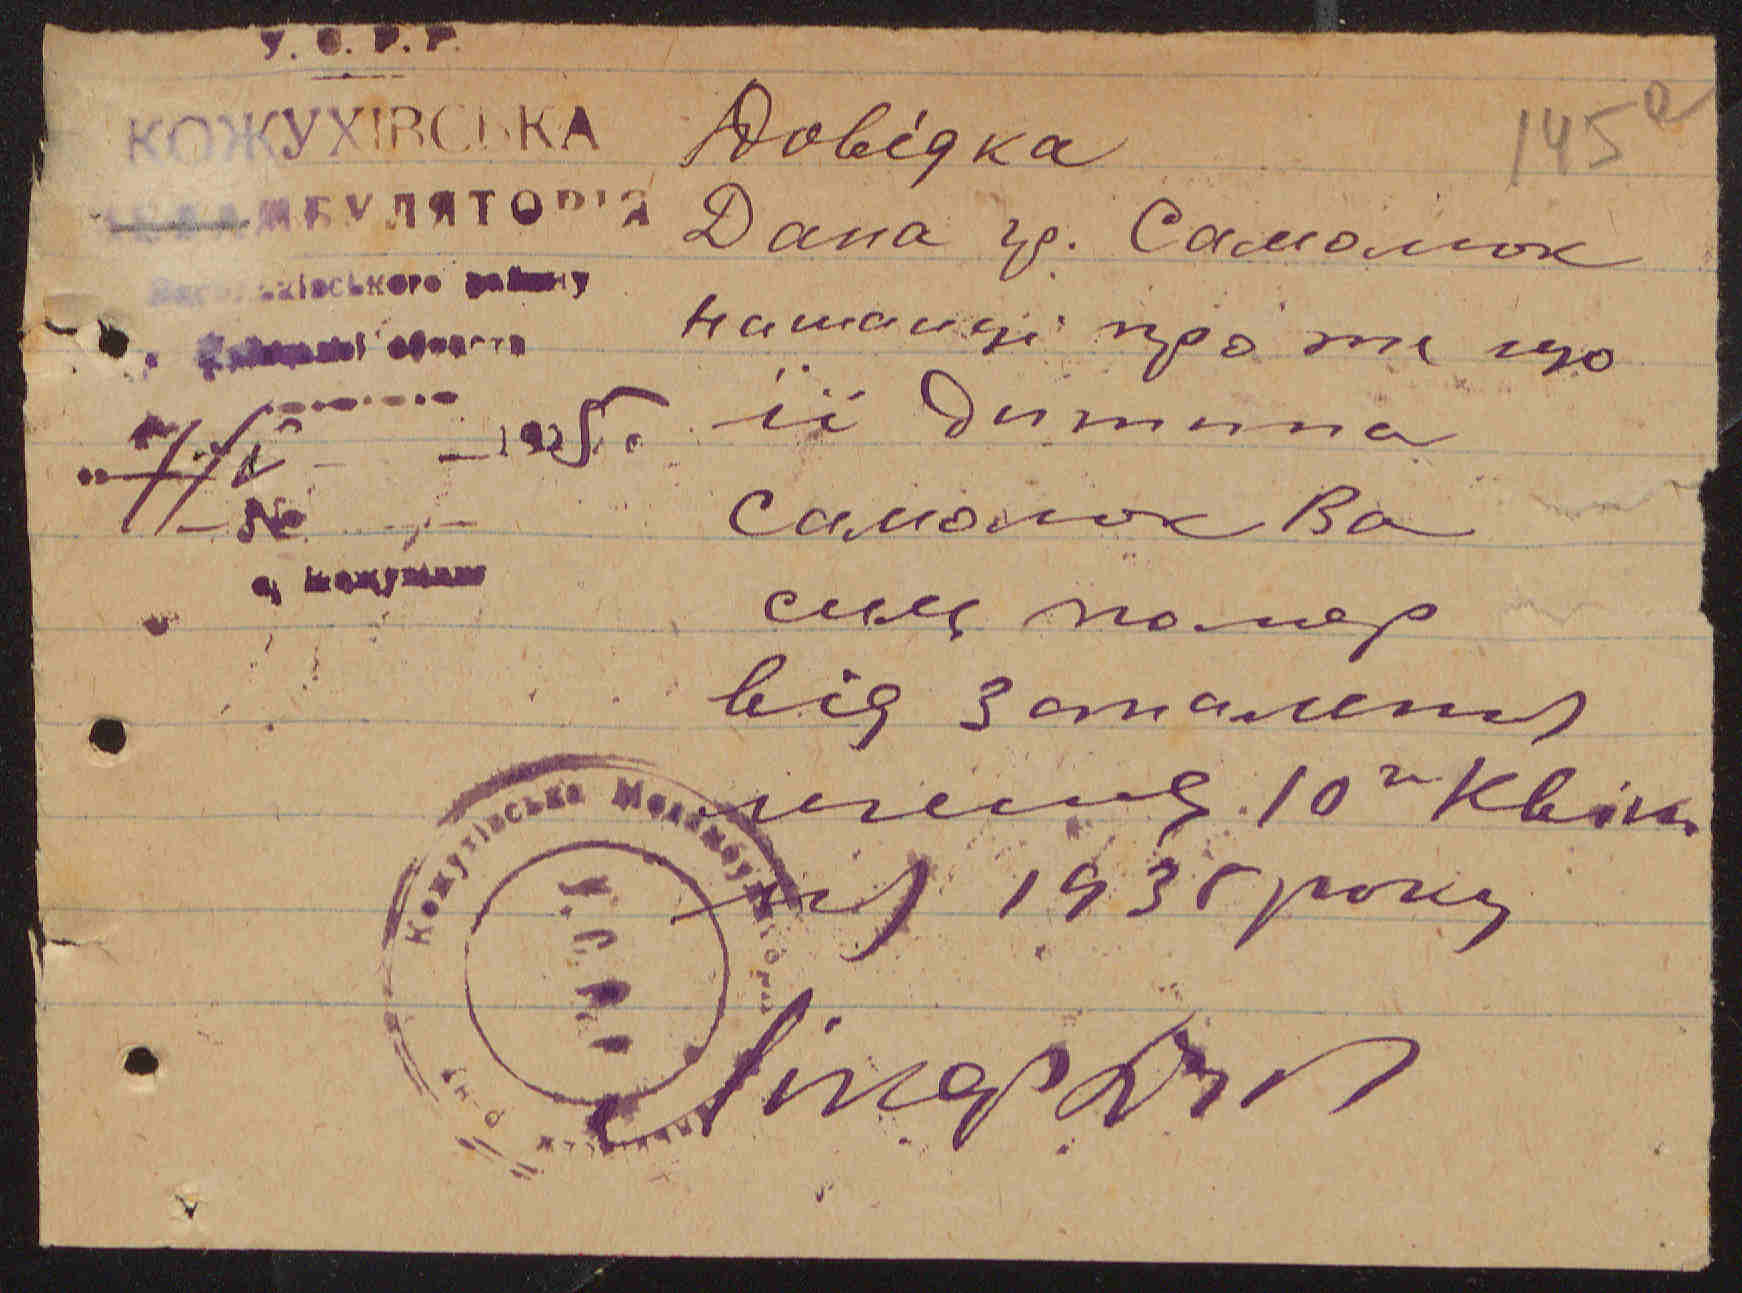 У. С. Р. Р.
КОЖУХІВСЬКА
АМБУЛЯТОРІЯ
району
області
1935
№
с. Кожухівка
145а
Довідка
Дана гр. Самолюк
Наталці про те що
її дитина
Самолюк Ва
силь помер
від запалення
легенів 10го Квіт
ня 1935 року
Кожухівська Медамбулаторія
р-ну